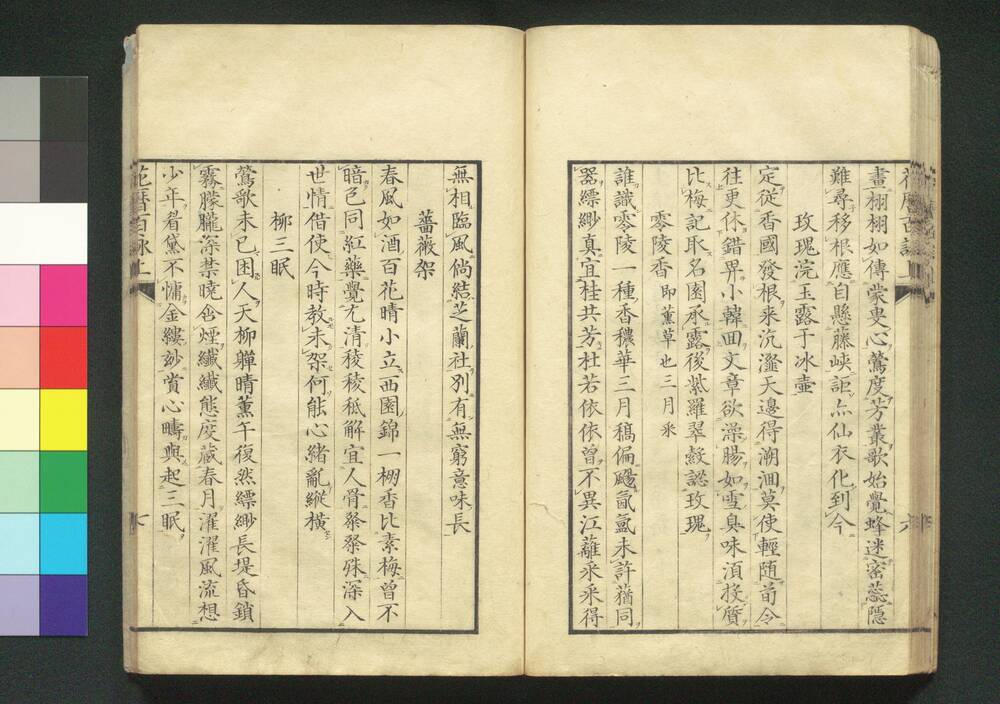 畫栩栩如傳蒙叟心鶯度芳叢歌始覺蜂迷密蕊隱
難尋移根應自懸藤峽詎亦仙衣化到今
玫瑰浣玉露于冰壺
定從香國發根來沆瀣天邊得溯洄莫使輕隨荀令
往更休錯畀小韓回文章欲澡腸如雪臭味須投質
比梅記取名園承露後紫羅翠縠認玫瑰
零陵香 即薰草也三月采
誰識零陵一種香穠華三月稿偏颺氤氳未許蕕同
器縹緲真宜桂共芳杜若依依曾不異江蘺采采得
花曆百詠上
六
無相臨風倘結芝蘭社列有無窮意味長
薔薇架
春風如酒百花晴小立西園錦一棚香比素梅曾不
暗色同紅藥覺尤清稜稜秪解宜人骨粲粲殊深入
世情借使今時教未架何能心緒亂縱橫
柳三眠
鶯歌未已困人天柳嚲晴薰午復然縹緲長堤昏鎖
霧朦朧深禁曉含煙纖纖態度藏春月濯濯風流想
少年看黛不慵金縷妙賞心疇與起三眠
花曆百詠上
七